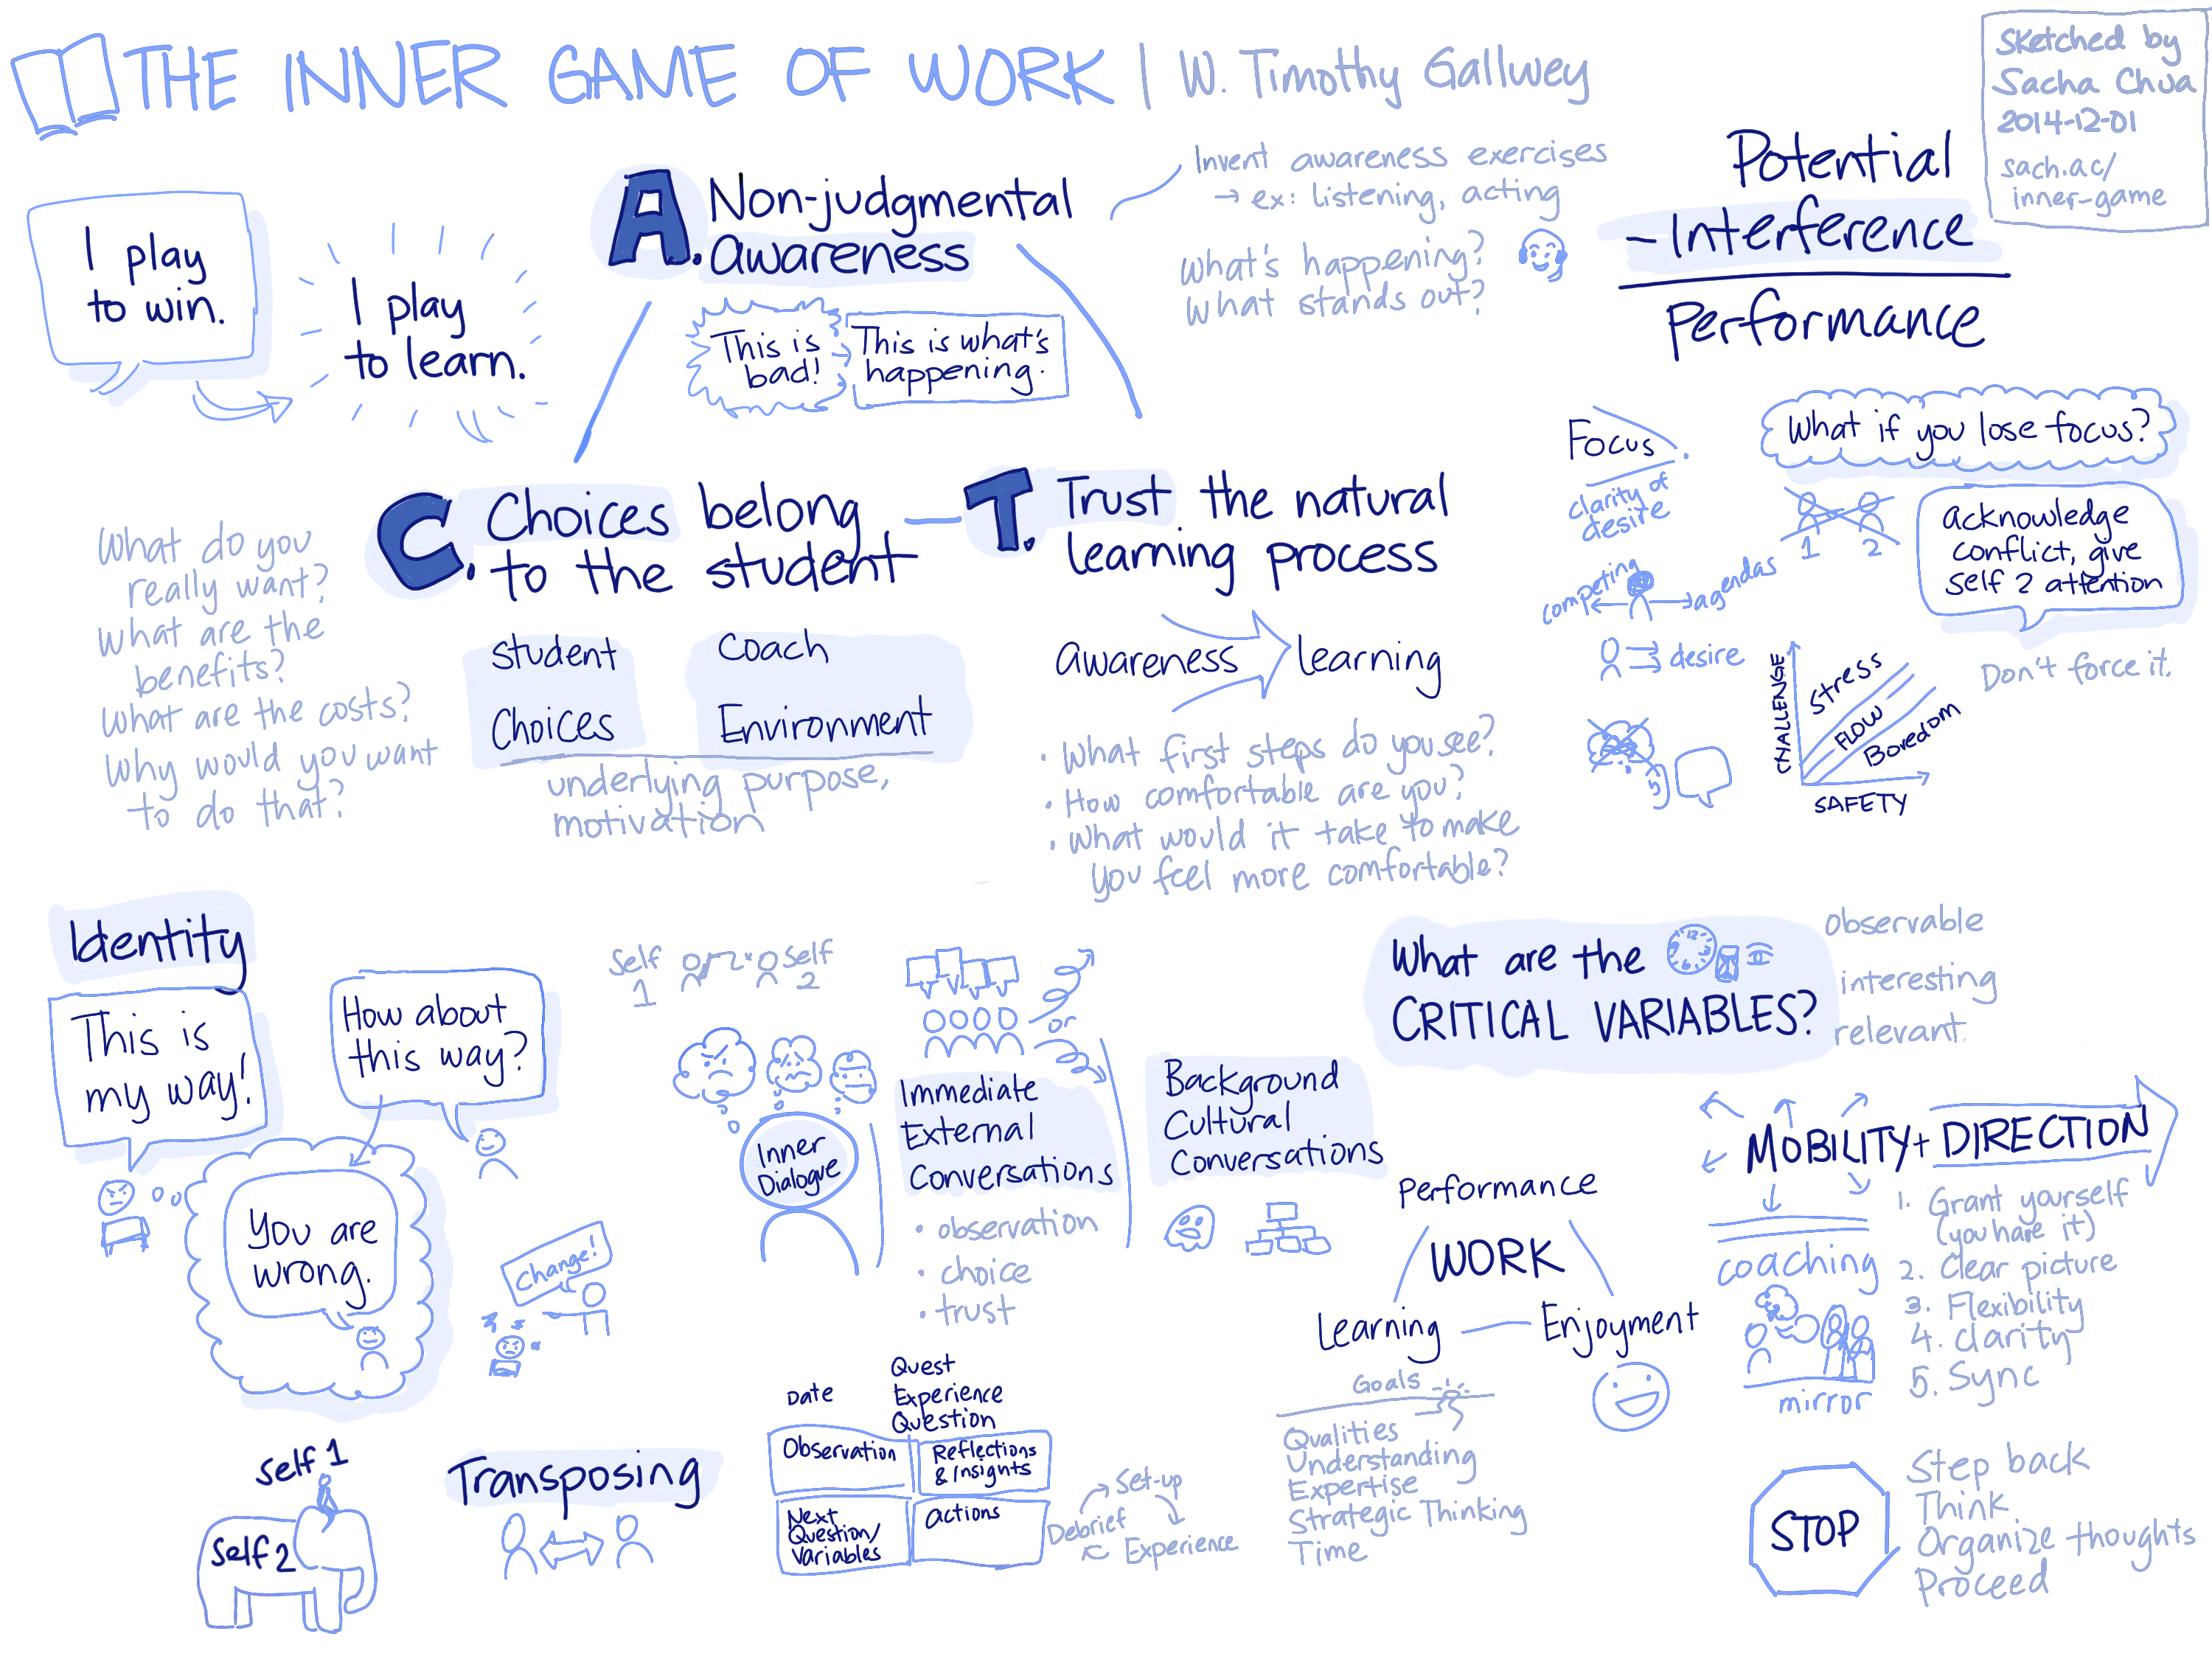 THE INNER GAME OF WORK | W. Timothy Gallwey
Sketched by
Sacha Chua
2014-12-01
sach.ac/
inner-game
I play
to win.
I play
to learn.
A. Non-judgmental
Awareness
This is
bad!
This is what's
happening.
Invent awareness exercises
→ ex: listening, acting
What's happening?
What stands out?
Potential
- Interference
Performance
C. Choices belong
to the student
What do you
really want?
What are the
benefits?
What are the costs?
Why would you want
to do that?
Student
Coach
Choices
Environment
underlying purpose,
motivation
T. Trust the natural
learning process
Awareness
learning
• What first steps do you see?
• How comfortable are you?
• What would it take to make
you feel more comfortable?
Focus
clarity of
desire
competing
agendas
desire
What if you lose focus?
1
2
acknowledge
conflict, give
self 2 attention
Don't force it.
CHALLENGE
Stress
FLOW
Boredom
SAFETY
Identity
This is
my way!
How about
this way?
You are
wrong.
Change!
Self
1
Self
2
Inner
Dialogue
or
Immediate
External
Conversations
• observation
• choice
• trust
Background
Cultural
Conversations
What are the
CRITICAL VARIABLES?
Observable
interesting
relevant.
Performance
WORK
Learning
Enjoyment
Goals
Qualities
Understanding
Expertise
Strategic Thinking
Time
MOBILITY + DIRECTION
coaching
mirror
1. Grant yourself
(you have it)
2. Clear picture
3. Flexibility
4. Clarity
5. Sync
Self 1
Self 2
Transposing
Date
Quest
Experience
Question
Observation
Reflections
& Insights
Next
Question/
Variables
Actions
Set-up
Debrief
Experience
STOP
Step back
Think
Organize thoughts
Proceed